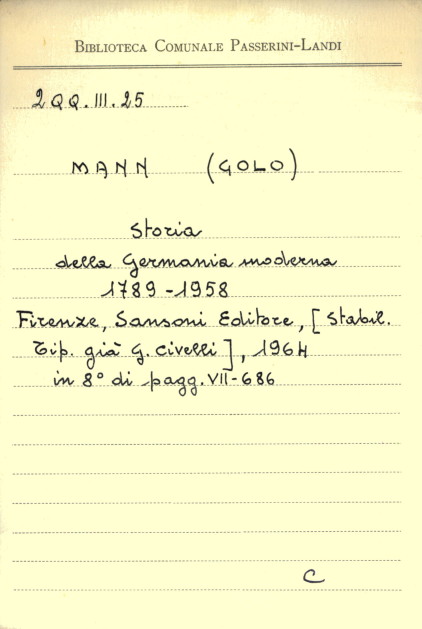 BIBLIOTECA COMUNALE PASSERINI-LANDI
2QQ.III.25
MANN (GOLO)
Storia
della Germania moderna
1789-1958
Firenze, Sansoni Editore, [Stabil.
Tip. già G. Civelli], 1964
in 8° di pagg. VII-686
C